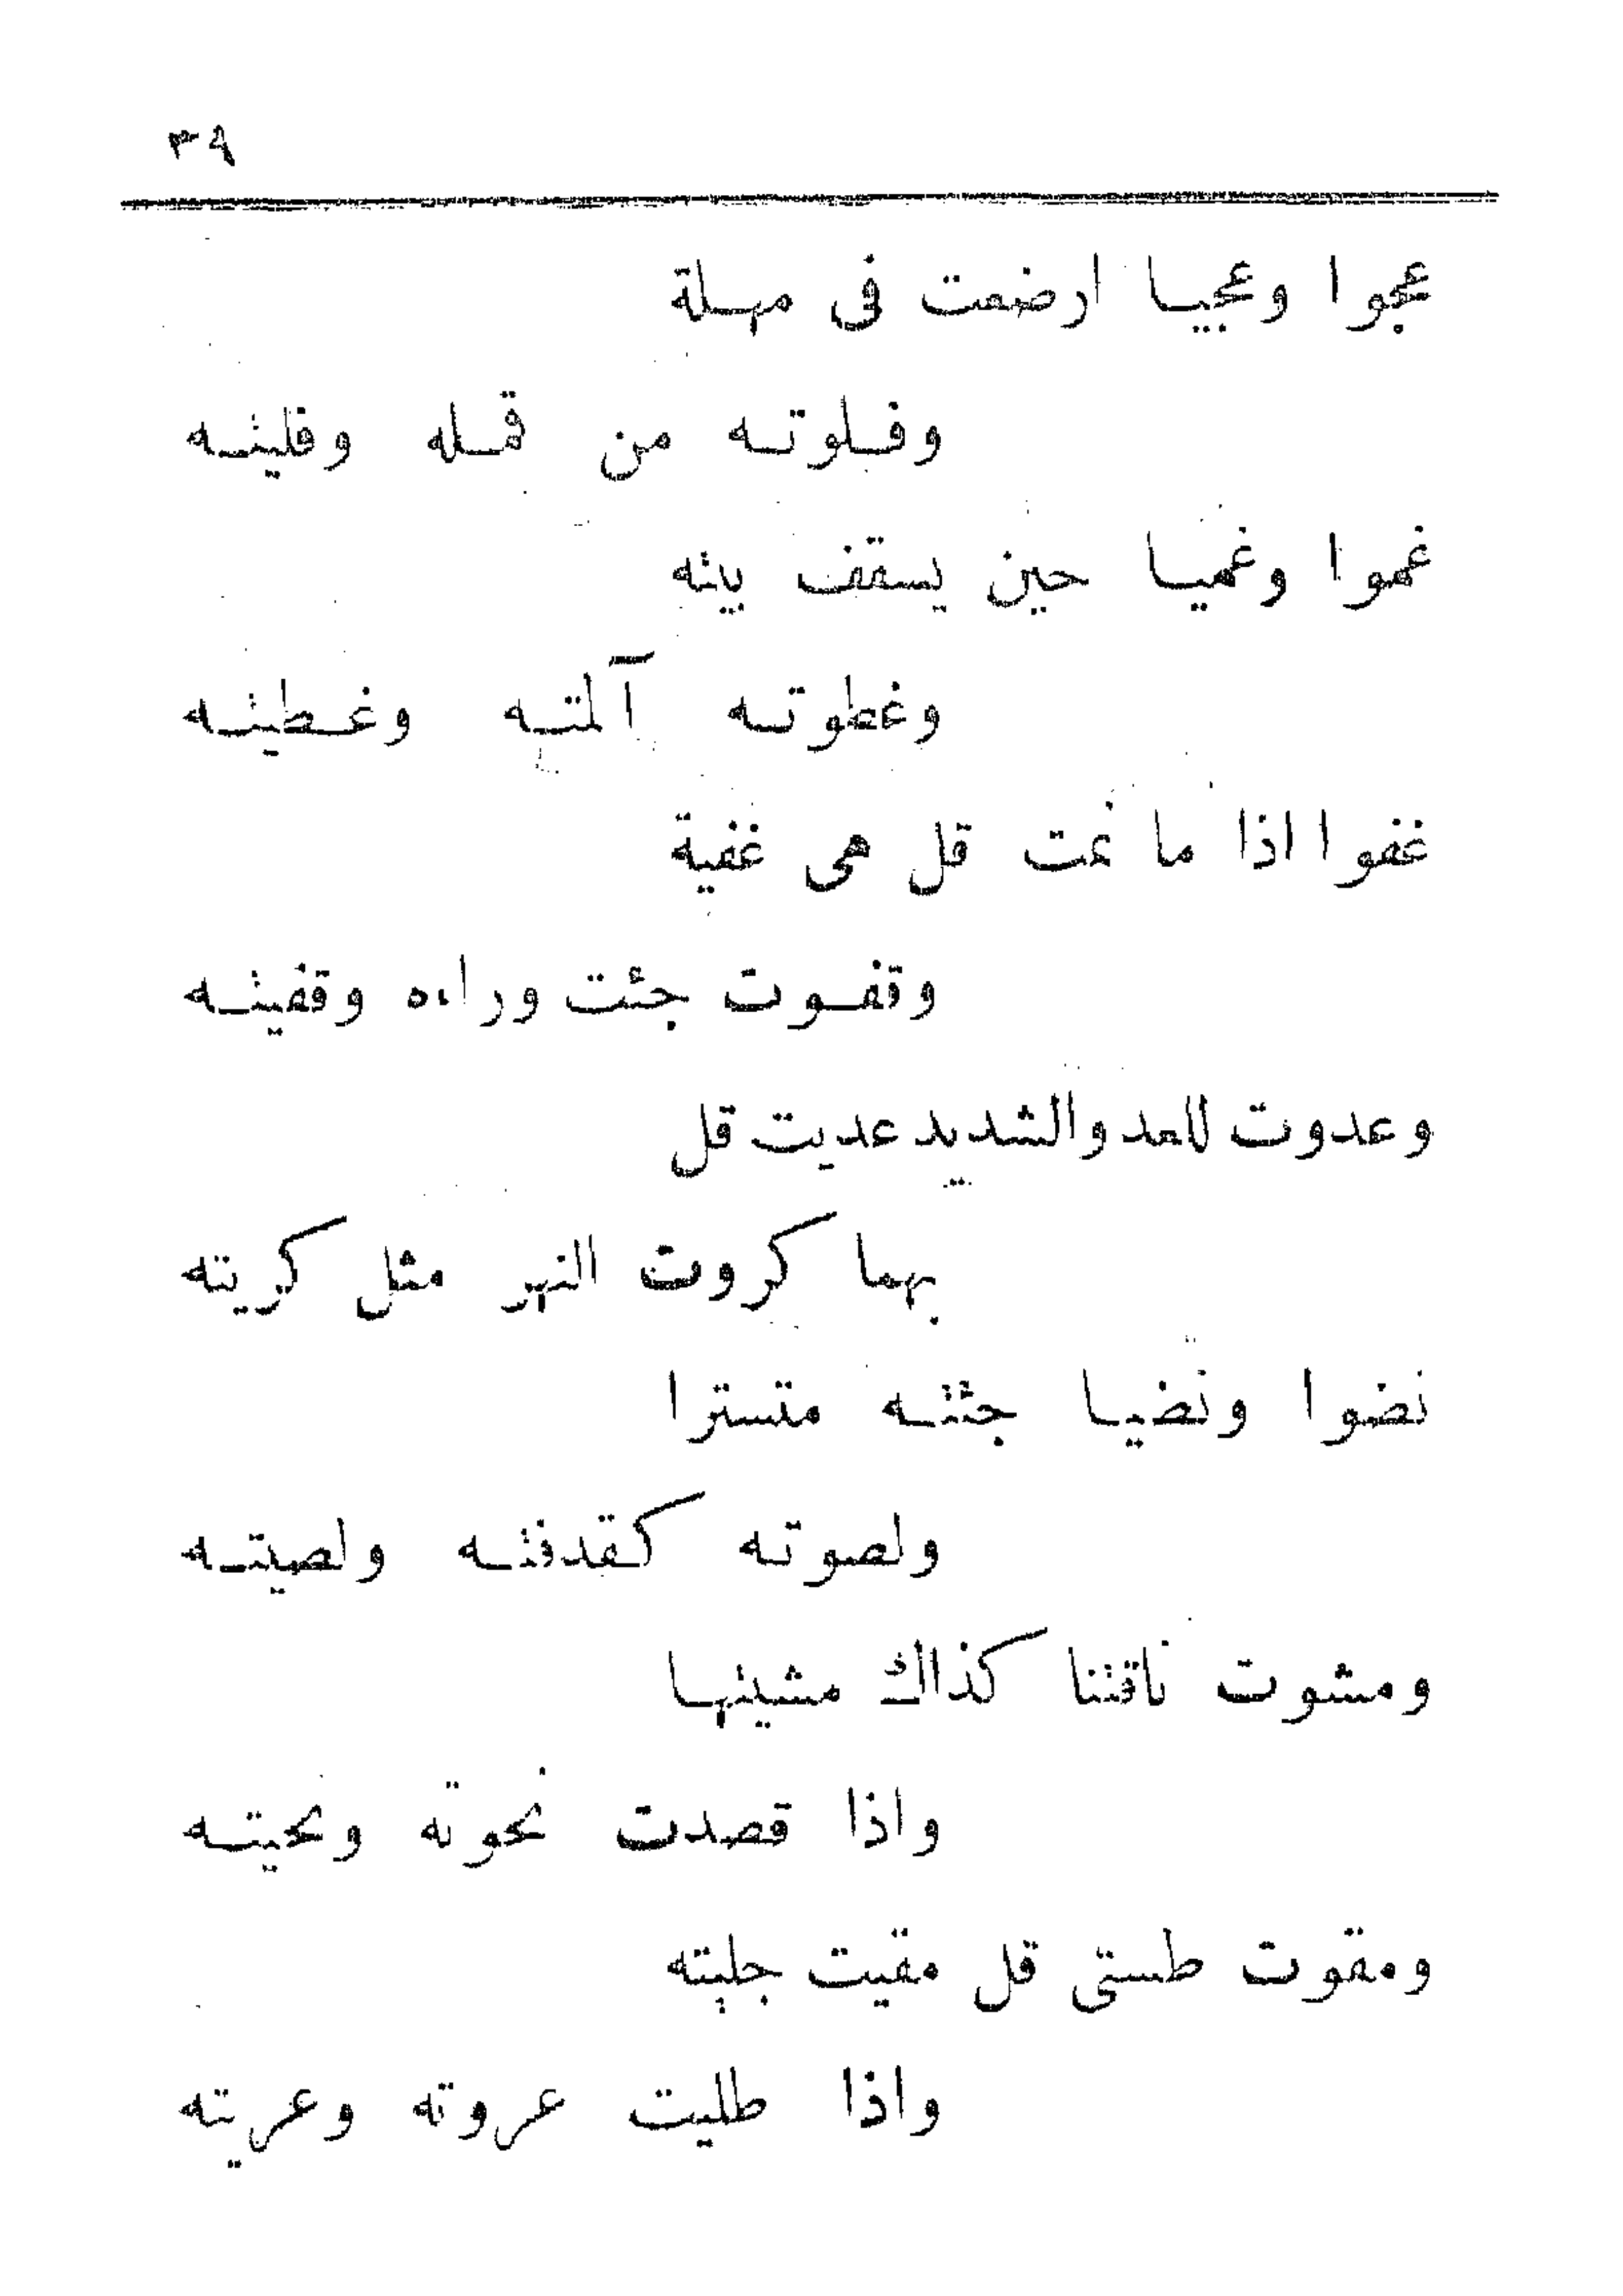 ٣٩
عجوا وعجيا ارضعت فى مهلة
وفلوته من قمله وفليته
غموا وغميا حين يسقف بيته
وغطوته آلمته وغطيته
غفوا اذا ما نمت قل هى غفية
وقفوت جئت وراءه وقفيته
وعدوت للعدو الشديد عديت قل
بهما كروت النهر مثل كريته
نضوا ونضيا جئته متسترا
ولصوته كقدفته ولصيته
ومشوت ناقتنا كذاك مشيتها
واذا قصدت نحوته ونحيته
ومقوت طستى قل مقيت جلبته
واذا طليت عروته وعريته